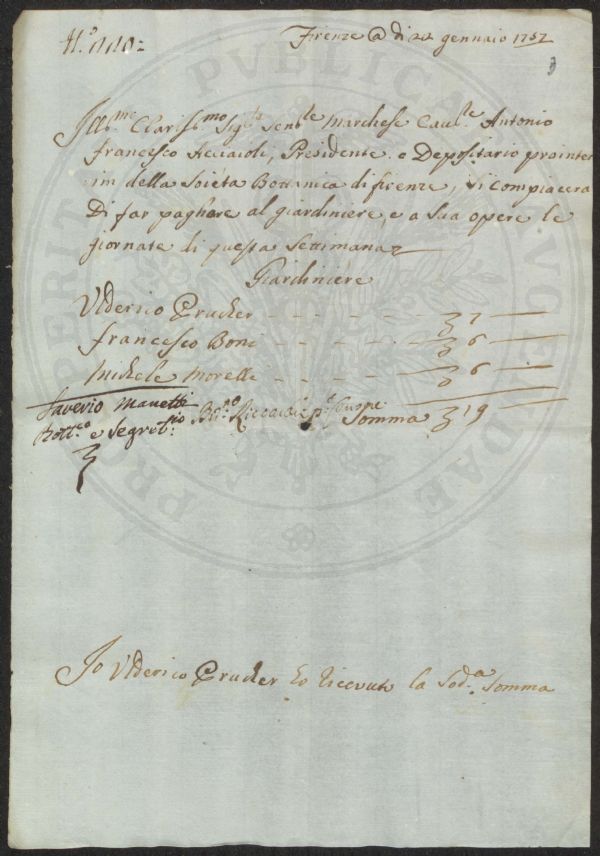 Firenze @ di 22 gennaio 1757
Ill.mo Clariss.mo Sig.re Sen.re Marchese Cav.re Antonio
Francesco Acciaioli, Presidente e Depositario prointer
im della Società Bottanica di firenze, si compiacerà
Di far paghare al giardiniere, e a sua opere le
giornate di questa Settimana
Giardiniere
Ulderico Prucker - - - - - 7 —
francesco Boni - - - - - 6 —
Michele Morelli - - - - - 6 —
Saverio Manetti
e Segret.rio
Somma 19 —
Io Ulderico Prucker ho ricevuto la Sod.a Somma
PROSPERITATI PUBLICAE AUGENDAE